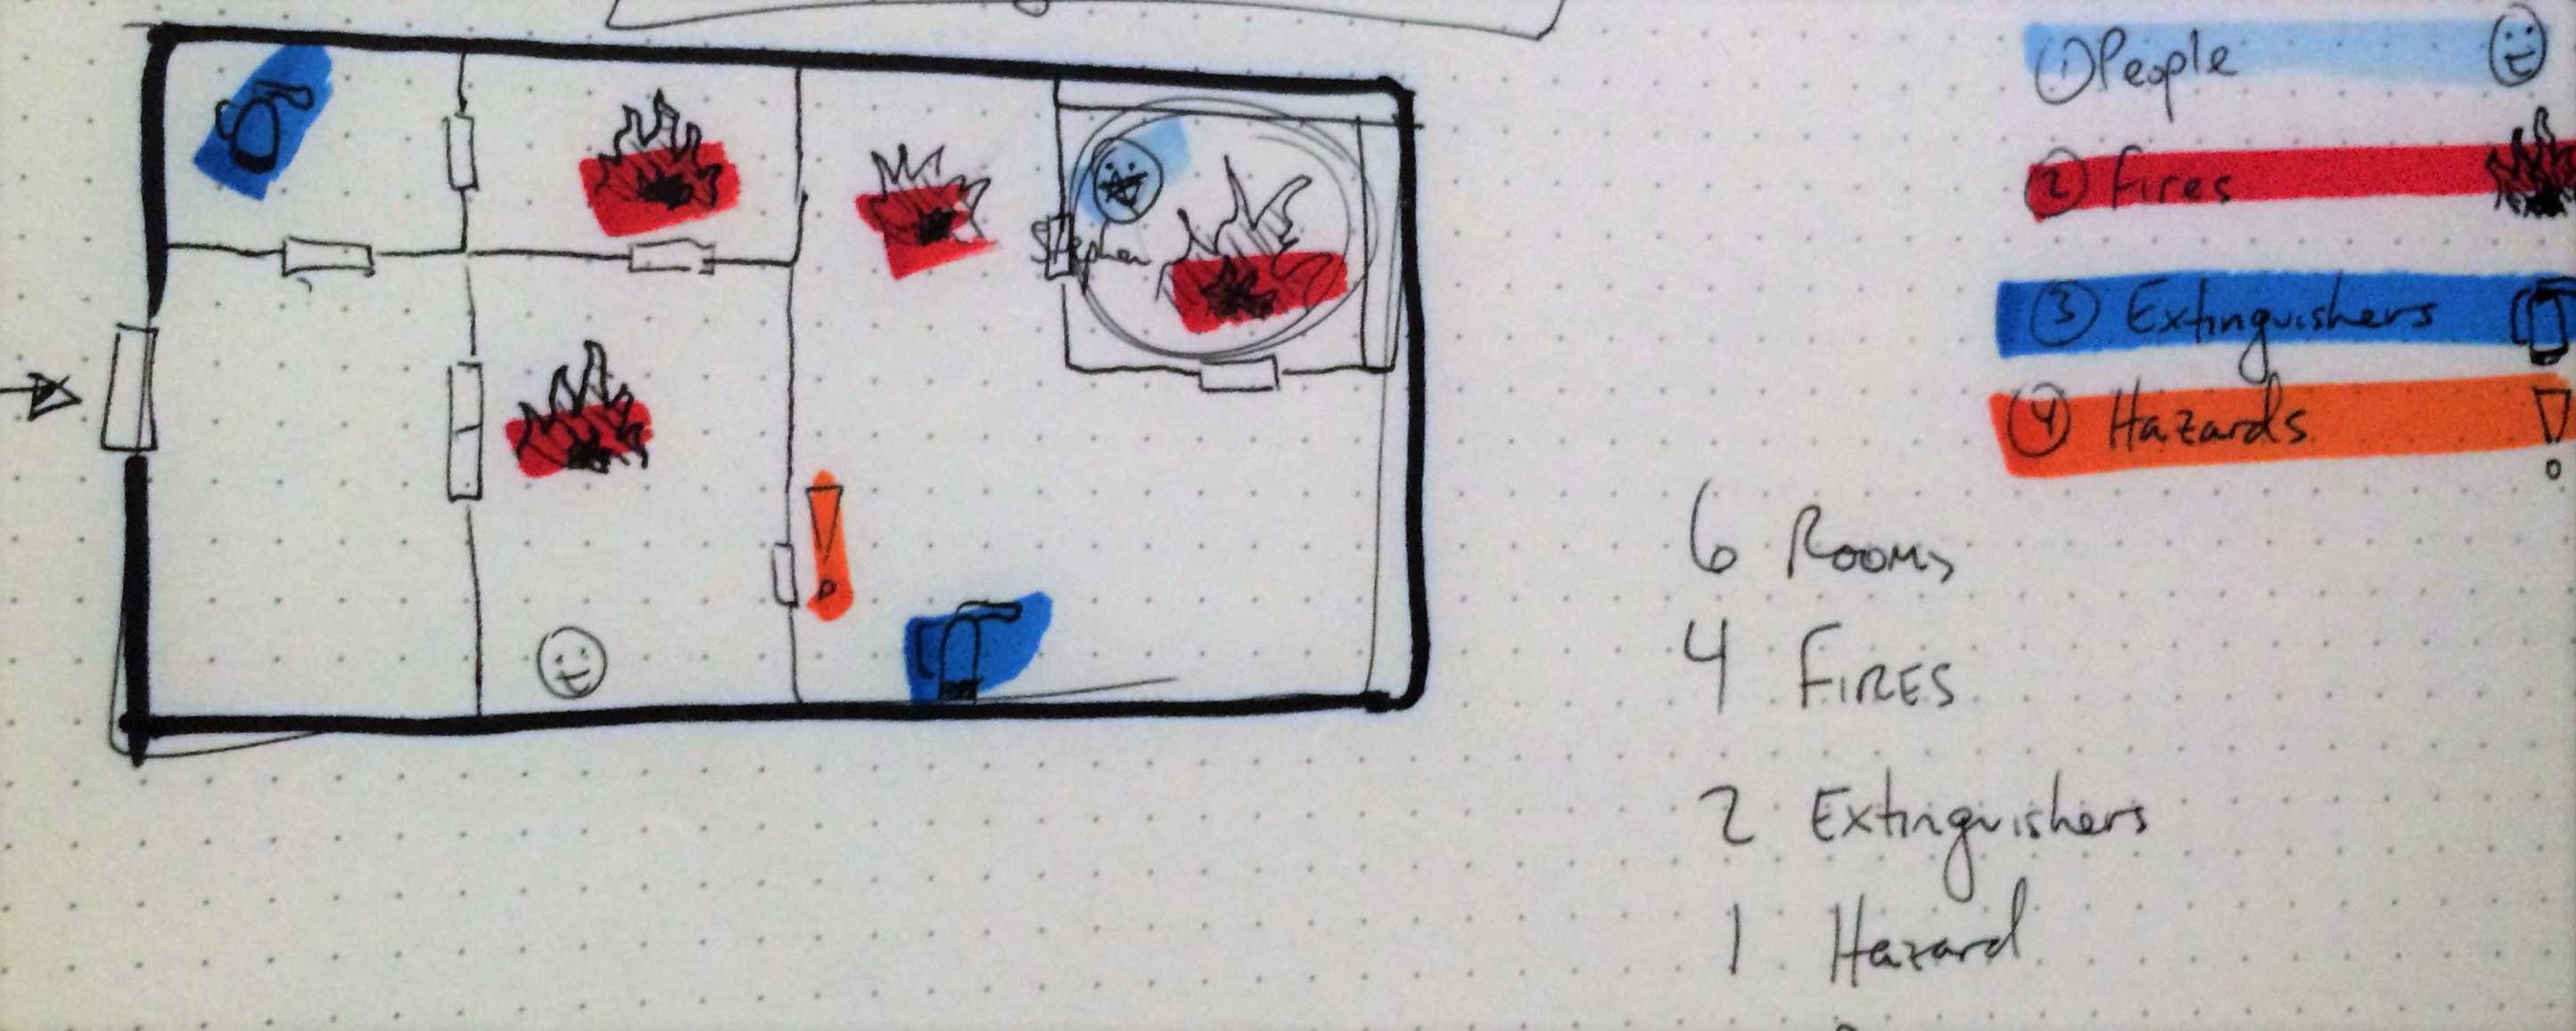 ① People
② Fires
③ Extinguishers
④ Hazards
Stephen
6 Rooms
4 FIRES
2 Extinguishers
1 Hazard